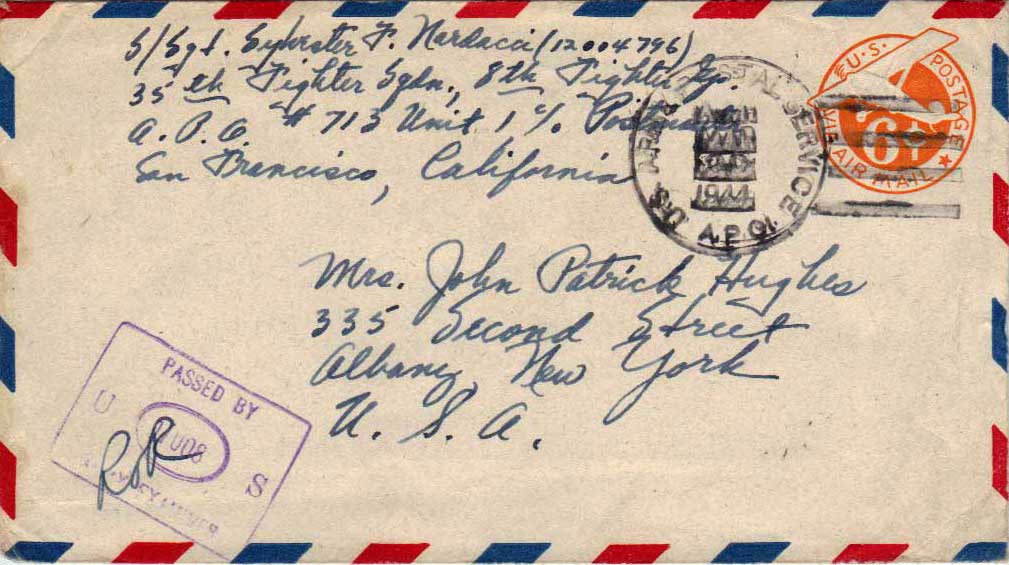 S/Sgt. Sylvester F. Nardacci (12004796)
35th Fighter Sqdn., 8th Fighter Gp.
A.P.O. # 713 Unit 1 c/o
San Francisco, California
U.S. ARMY POSTAL SERVICE
1944
A.P.O.
U.S. POSTAGE
6¢
VIA AIR MAIL
Mrs. John Patrick Hughes
335 Second Street
Albany, New York
U. S. A.
PASSED BY
U S
ARMY EXAMINER